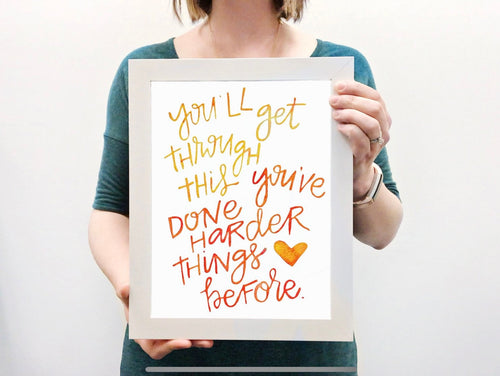 you'll get
through
this you've
done
harder
things
before.